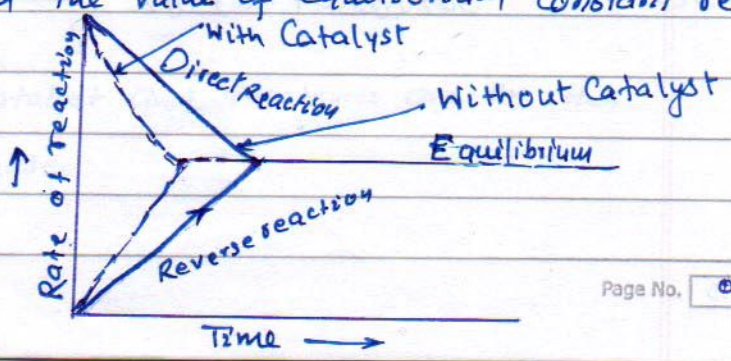 the value of equilibrium constant re
With Catalyst
Direct Reaction
Without Catalyst
Equilibrium
Rate of reaction
Reverse reaction
Page No.
Time